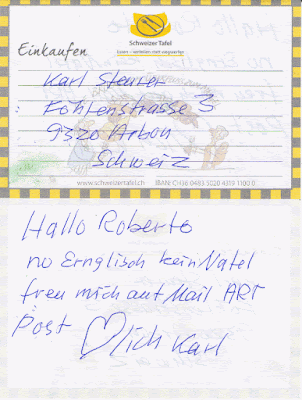 Schweizer Tafel
Essen – verteilen statt wegwerfen
Einkaufen
Karl Steurer
Fohlenstrasse 3
9320 Arbon
Schweiz
www.schweizertafel.ch IBAN: CH36 0483 5020 4319 1100 0
Hallo Roberto
no Ernglisch kein Natel
freu mich auf Mail ART
Post ♡lich Karl